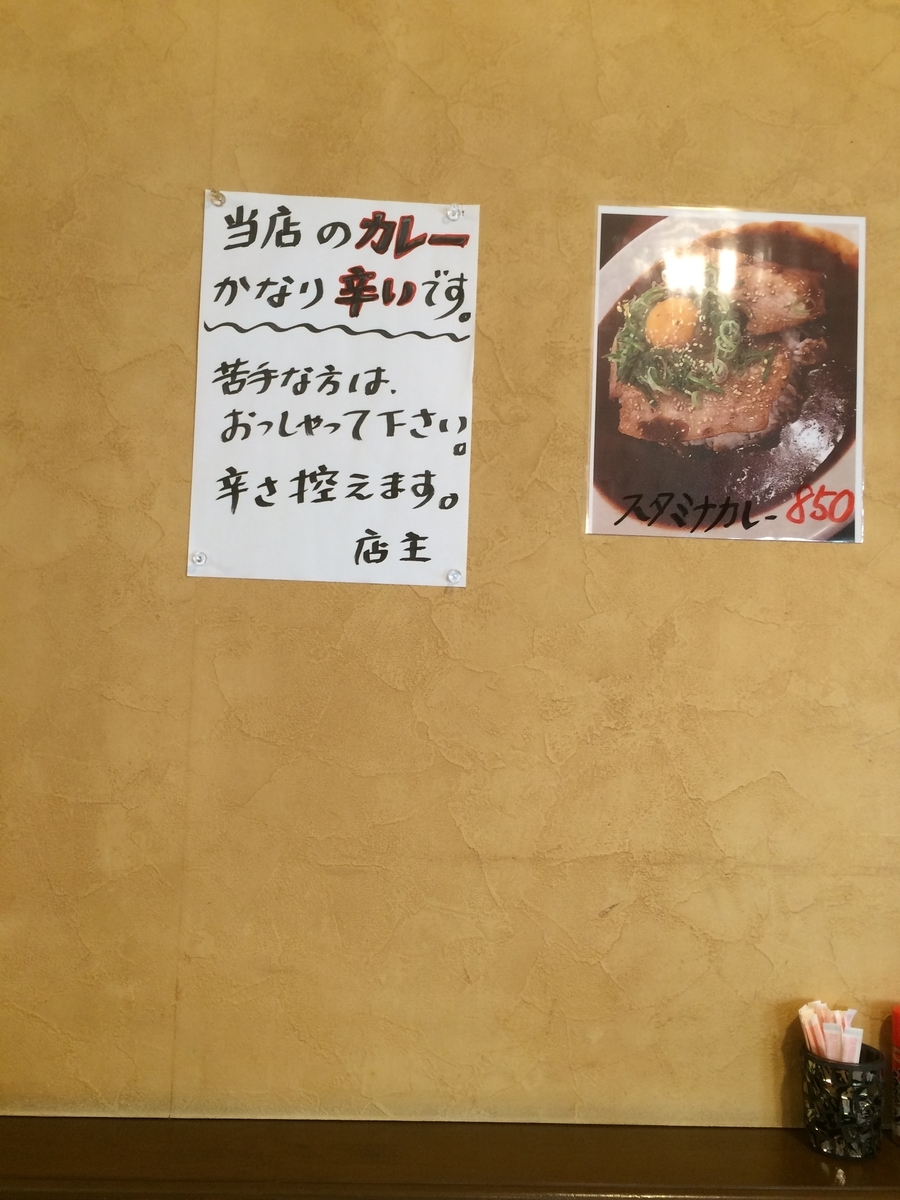 当店のカレー
かなり辛いです。
苦手な方は、
おっしゃって下さい。
辛さ控えます。
店主
スタミナカレー 850